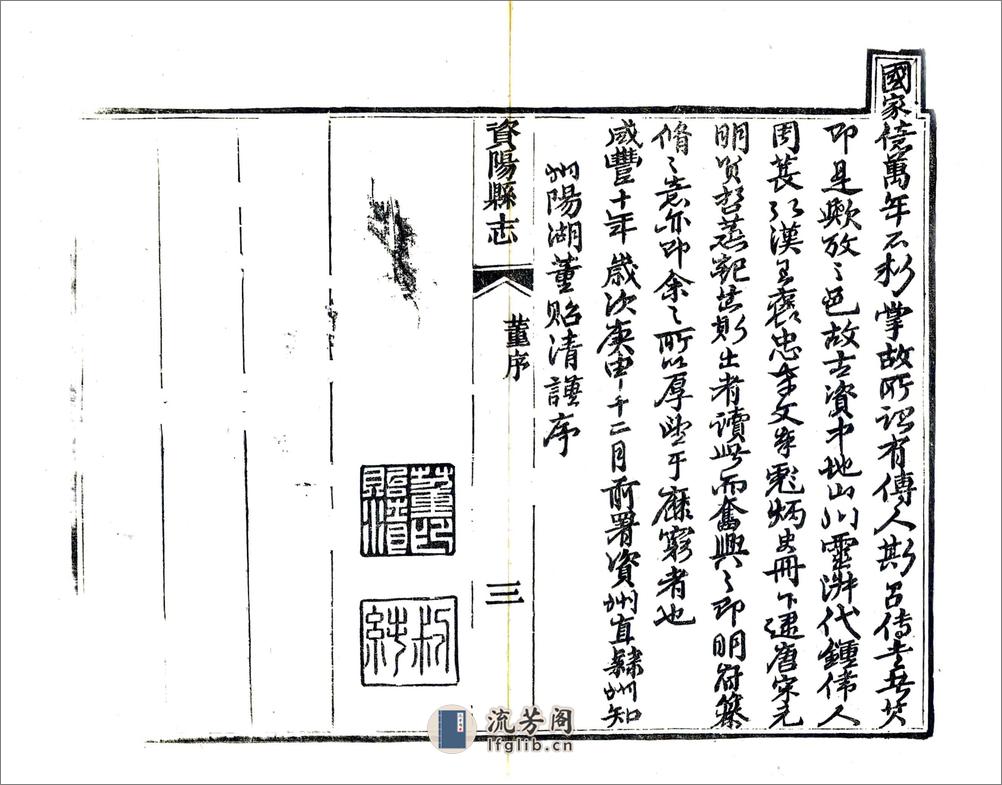 國家億萬年不朽掌故所謂有傳人斯
即是歟攷之邑故古資中地山川靈淑代鍾偉人
周萇弘漢王襃忠孝文章彪炳史冊下逮唐宋元
明賢哲出者讀此而奮興即明府纂
脩之意亦即余之所以厚望于靡窮者也
咸豐十年歲次庚申十二月前署資州直隸州知
州陽湖董貽清謹序
資陽縣志
董序
三
董印貽清
流芳阁
lfglib.cn